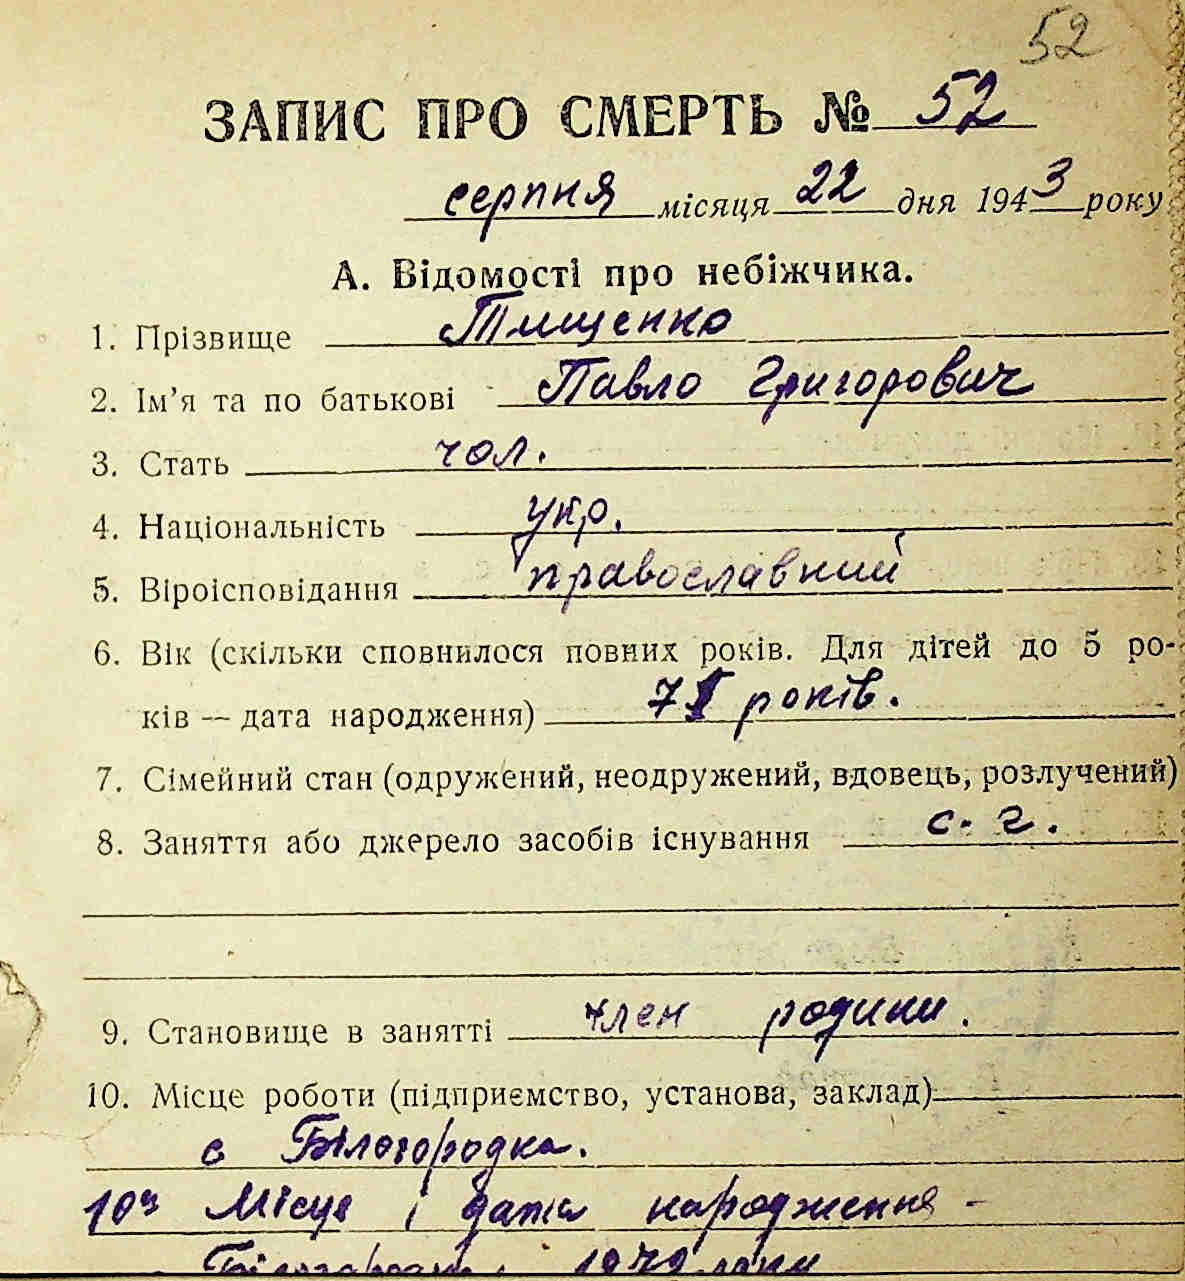 52
ЗАПИС ПРО СМЕРТЬ № 52
серпня місяця 22 дня 1943 року
А. Відомості про небіжчика.
1. Прізвище Тищенко
2. Ім'я та по батькові Павло Григорович
3. Стать чол.
4. Національність укр.
5. Віроісповідання православний
6. Вік (скільки сповнилося повних років. Для дітей до 5 ро-
ків — дата народження) 71 років.
7. Сімейний стан (одружений, неодружений, вдовець, розлучений)
8. Заняття або джерело засобів існування с. г.
9. Становище в занятті член родини.
10. Місце роботи (підприємство, установа, заклад)
с Білогородка.
10а Місце і дата народження -
1872 роки